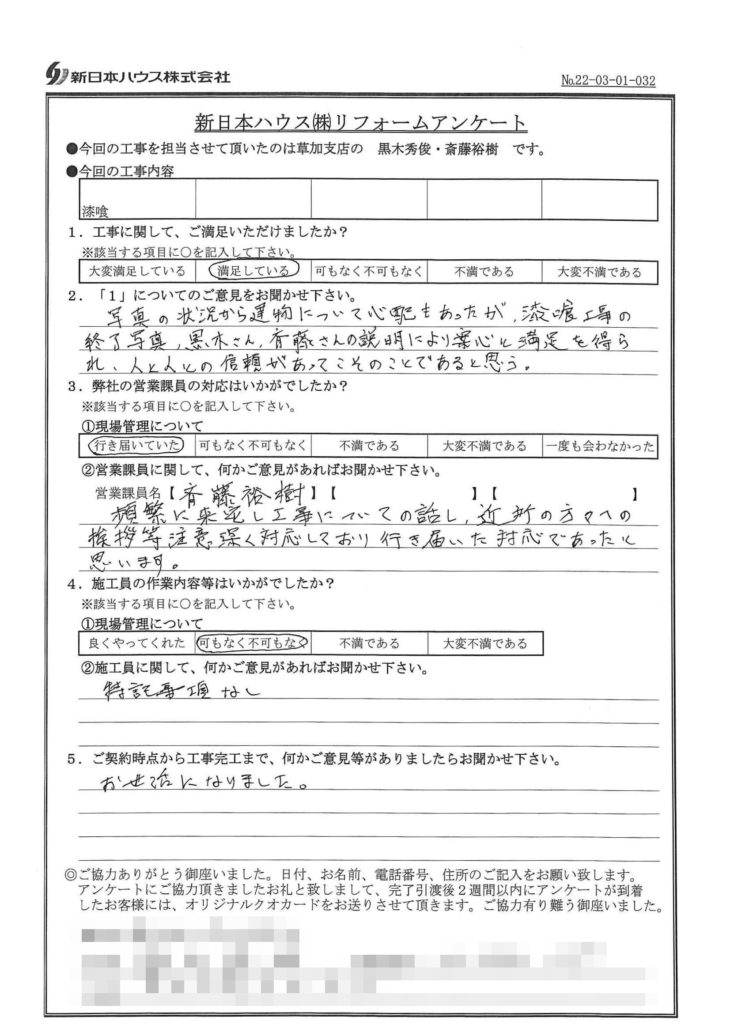 新日本ハウス株式会社
No.22-03-01-032
新日本ハウス㈱リフォームアンケート
●今回の工事を担当させて頂いたのは草加支店の 黒木秀俊・斎藤裕樹 です。
●今回の工事内容
漆喰
1．工事に関して、ご満足いただけましたか？
※該当する項目に〇を記入して下さい。
大変満足している 満足している 可もなく不可もなく 不満である 大変不満である
2．「1」についてのご意見をお聞かせ下さい。
写真の状況から建物について心配もあったが、漆喰工事の
終了写真、黒木さん、斉藤さんの説明により安心と満足を得ら
れ、人と人との信頼があってこそのことであると思う。
3．弊社の営業課員の対応はいかがでしたか？
※該当する項目に〇を記入して下さい。
①現場管理について
行き届いていた 可もなく不可もなく 不満である 大変不満である 一度も会わなかった
②営業課員に関して、何かご意見があればお聞かせ下さい。
営業課員名【 斉藤裕樹 】【 】【 】
頻繁に来宅し工事についての話し、近所の方々への
挨拶等注意深く対応しており行き届いた対応であったと
思います。
4．施工員の作業内容等はいかがでしたか？
※該当する項目に〇を記入して下さい。
①現場管理について
良くやってくれた 可もなく不可もなく 不満である 大変不満である
②施工員に関して、何かご意見があればお聞かせ下さい。
特記事項なし
5．ご契約時点から工事完工まで、何かご意見等がありましたらお聞かせ下さい。
お世話になりました。
◎ご協力ありがとう御座いました。日付、お名前、電話番号、住所のご記入をお願い致します。
アンケートにご協力頂きましたお礼と致しまして、完了引渡後２週間以内にアンケートが到着
したお客様には、オリジナルクオカードをお送りさせて頂きます。ご協力有り難う御座いました。